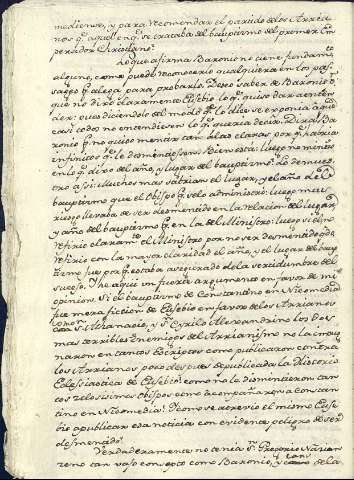 mediense, y para recomendar el partido de los Arria-
nos q.e aquel en q.e se trataba del bautismo del primer Em-
perador Christiano.
Lo que afirma Baronio no tiene fundam.to
alguno, como puede reconocerlo qualquiera en los pas-
sages q.e alega para probarlo. Deseo saber de Baronio
que no diro claramente Eusebio lo q.e quiso dar a enten-
der: pues diciendolo del modo q.e lo dice se exponia a que
casi todos no entendiesen lo q.e queria decir. Dira Ba-
ronio q.e no quiso mentir tan a las claras por q.e habria
infinitos q.e le desmentiessen. Bien està: luego no mintio
en lo q.e diro del año, y lugar del bautismo. Lo demues-
tro assi: muchos mas sabrian el lugar, y el año del
bautismo que el Obispo q.e se lo administrò: luego mas
riesgo llevaba de ser desmentido en la relacion del lugar
y año del bautismo q.e en la del Ministro: luego si no
refirio claram.te el Ministro por no ser desmentido
refirio con la mayor claridad el año, y el lugar del bau-
tismo fue por q.e estaba asegurado de la certidumbre del
sucesso. Y he aqui un fuerte argumento en favor de mi
opinion. Si el bautismo de Constantino en Nicomedia
fue mera ficcion de Eusebio en favor de los Arrianos
como S. Athanasio, y S. Cyrilo Alexandrino los dos
mas terribles enemigos del Arrianismo no la impug-
naron en tantos Escriptos como publicaron contra
los Arrianos poco despues de publicada la Historia
Eclesiastica de Eusebio? como no la desmintieron tan-
tos zelosissimos Obispos como acompañaron a Constan-
tino en Nicomedia? Y como se atreviò el mismo Euse-
bio a publicar esa noticia con evidente peligro de ser
desmentido?
Verdaderamente no tenia S. Gregorio Nazian-
zeno tan baxo concepto como Baronio, de la